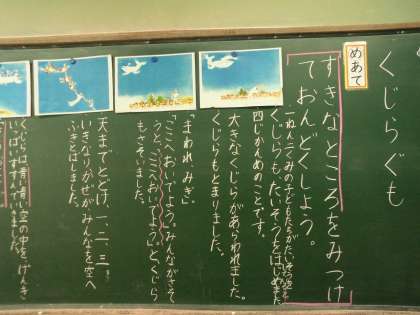 くじらぐも
めあて
すきなところをみつけ
ておんどくしょう。
一ねん二くみの子どもたちがたいそうを
くじらもたいそうをはじめました
四じかんめのことです。
大きなくじらがあらわれました。
くじらもとまりました。
「まわれ、みぎ」
「ここへおいでよう。」みんながさそ
うと、「ここへおいでよう。」と、くじら
もさそいました。
天までとどけ、一、二、三。
いきなりかぜが、みんなを空へ
ふきとばしました。
くじらは、青い青い空の中を、げんき
いっぱいすすんでいきました。